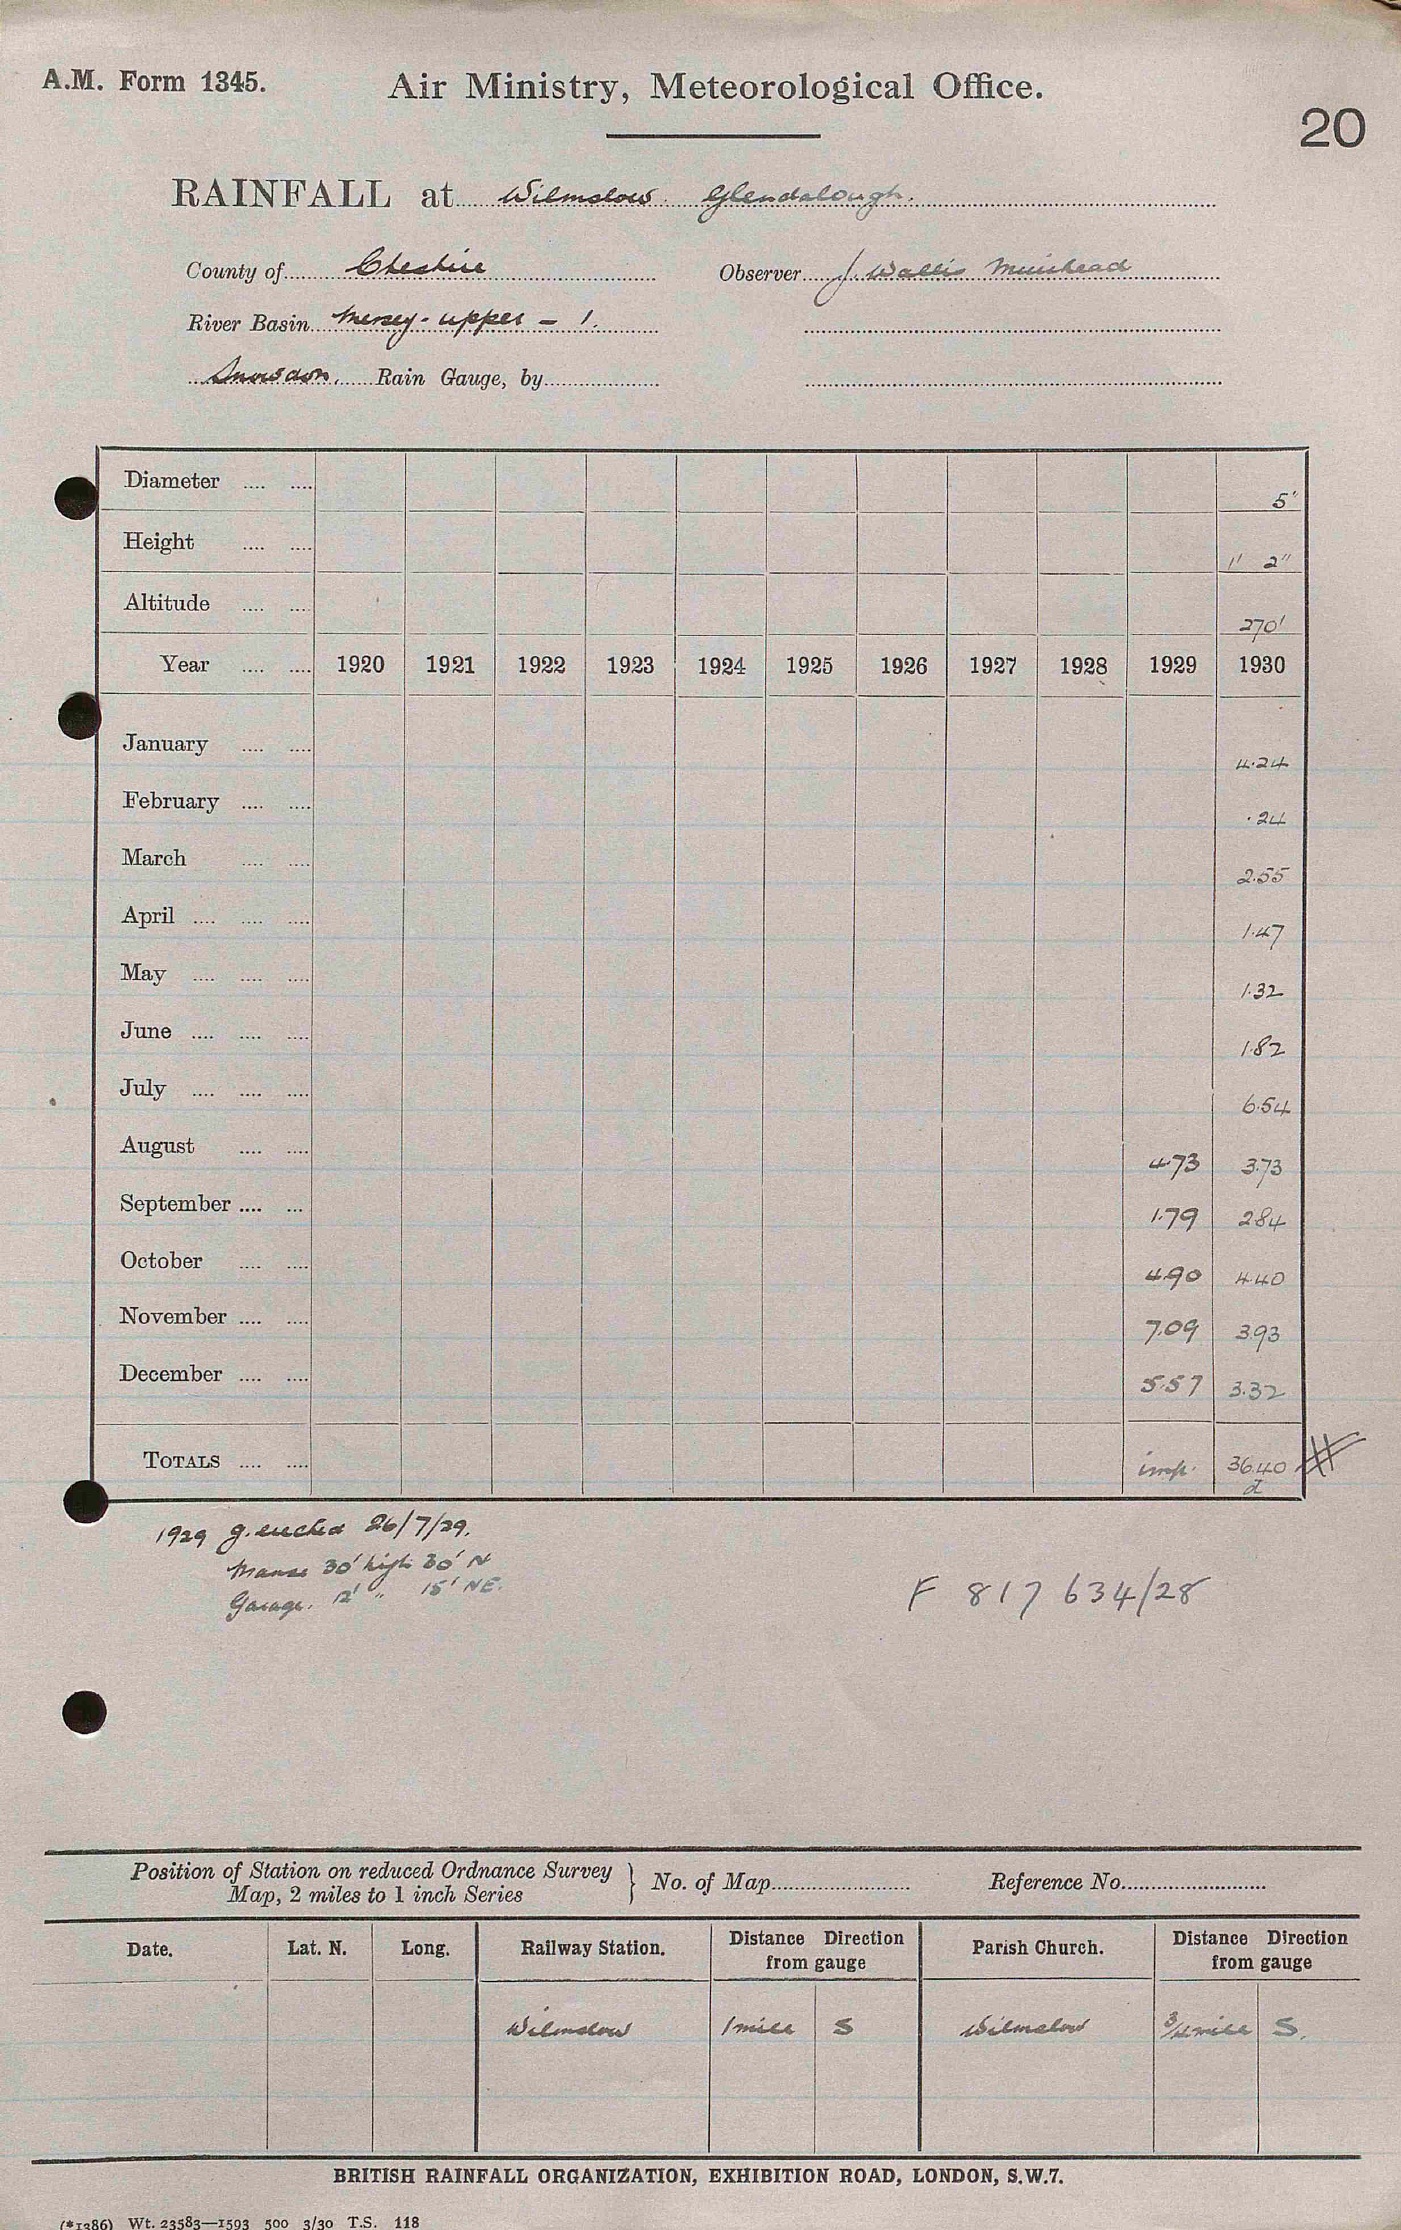 A.M. Form 1345.
Air Ministry, Meteorological Office.
20
RAINFALL at Wilmslow. Glendalough.
County of Cheshire Observer J. Wallis Muirhead
River Basin Mersey-upper - 1.
Snowdon. Rain Gauge, by
Diameter .... .... 5"
Height .... .... 1' 2"
Altitude .... .... 270'
Year .... .... 1920 1921 1922 1923 1924 1925 1926 1927 1928 1929 1930
January .... .... 4.24
February .... .... .24
March .... .... 2.55
April .... .... .... 1.47
May .... .... .... 1.32
June .... .... .... 1.82
July .... .... .... 6.54
August .... .... 4.73 3.73
September .... ... 1.79 2.84
October .... .... 4.90 4.40
November .... .... 7.09 3.93
December .... .... 5.57 3.32
TOTALS .... .... imp. 36.40
1929 g. erected 26/7/29.
Manse 30' high 30' N
Garage. 12' " 15' NE.
F 817 634/28
Position of Station on reduced Ordnance Survey Map, 2 miles to 1 inch Series } No. of Map Reference No.
Date. Lat. N. Long. Railway Station. Distance Direction from gauge Parish Church. Distance Direction from gauge
Wilmslow 1 mile S Wilmslow 3/4 mile S.
BRITISH RAINFALL ORGANIZATION, EXHIBITION ROAD, LONDON, S.W.7.
(*1386) Wt. 23583—1593 500 3/30 T.S. 118